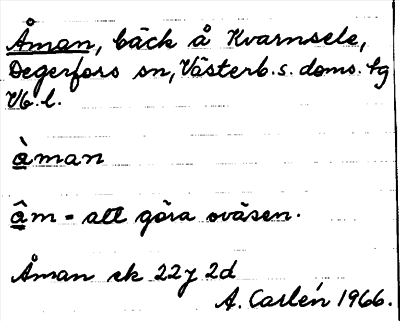 Åman, bäck å Kvarnsele,
Degerfors sn, Västerb. s. doms. tg
Vb. l.
àman
âm = att göra oväsen.
Åman ek 22 J 2d
A. Carlén 1966.